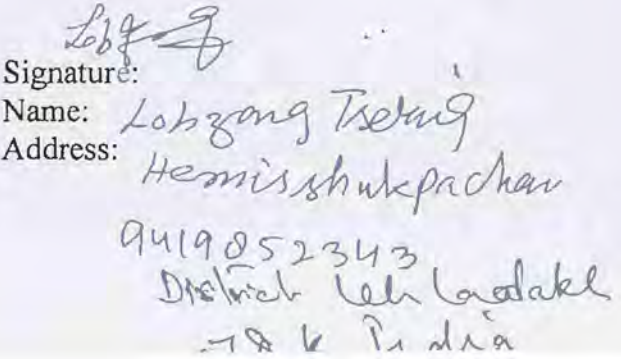 Signature:
Name: Lobzang Tsering
Address: Hemisshukpachan
9419852343
District Leh Ladakh
J & K India